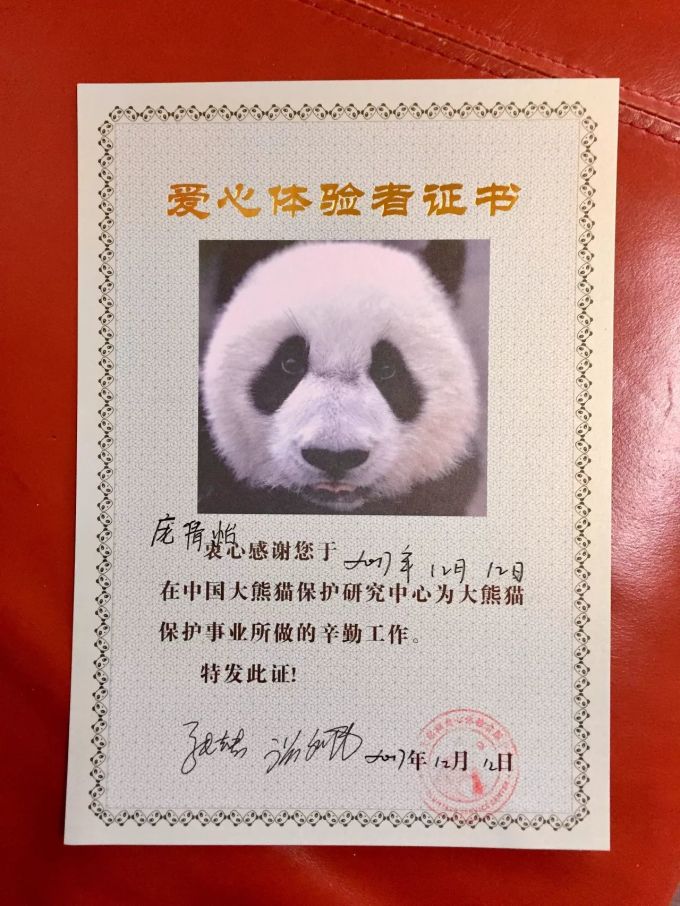 爱心体验者证书
庞倩怡
衷心感谢您于2017年12月12日
在中国大熊猫保护研究中心为大熊猫
保护事业所做的辛勤工作。
特发此证!
2017年12月12日